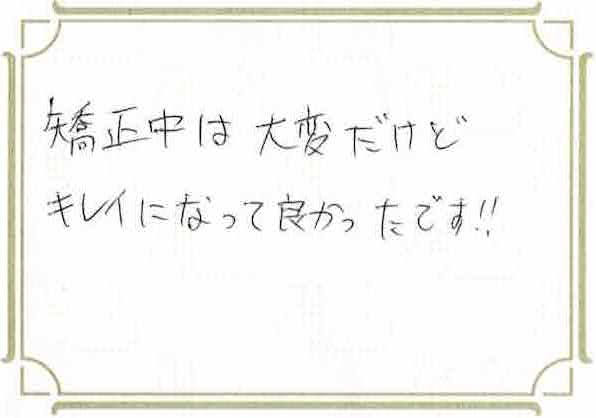 矯正中は大変だけど
キレイになって良かったです!!